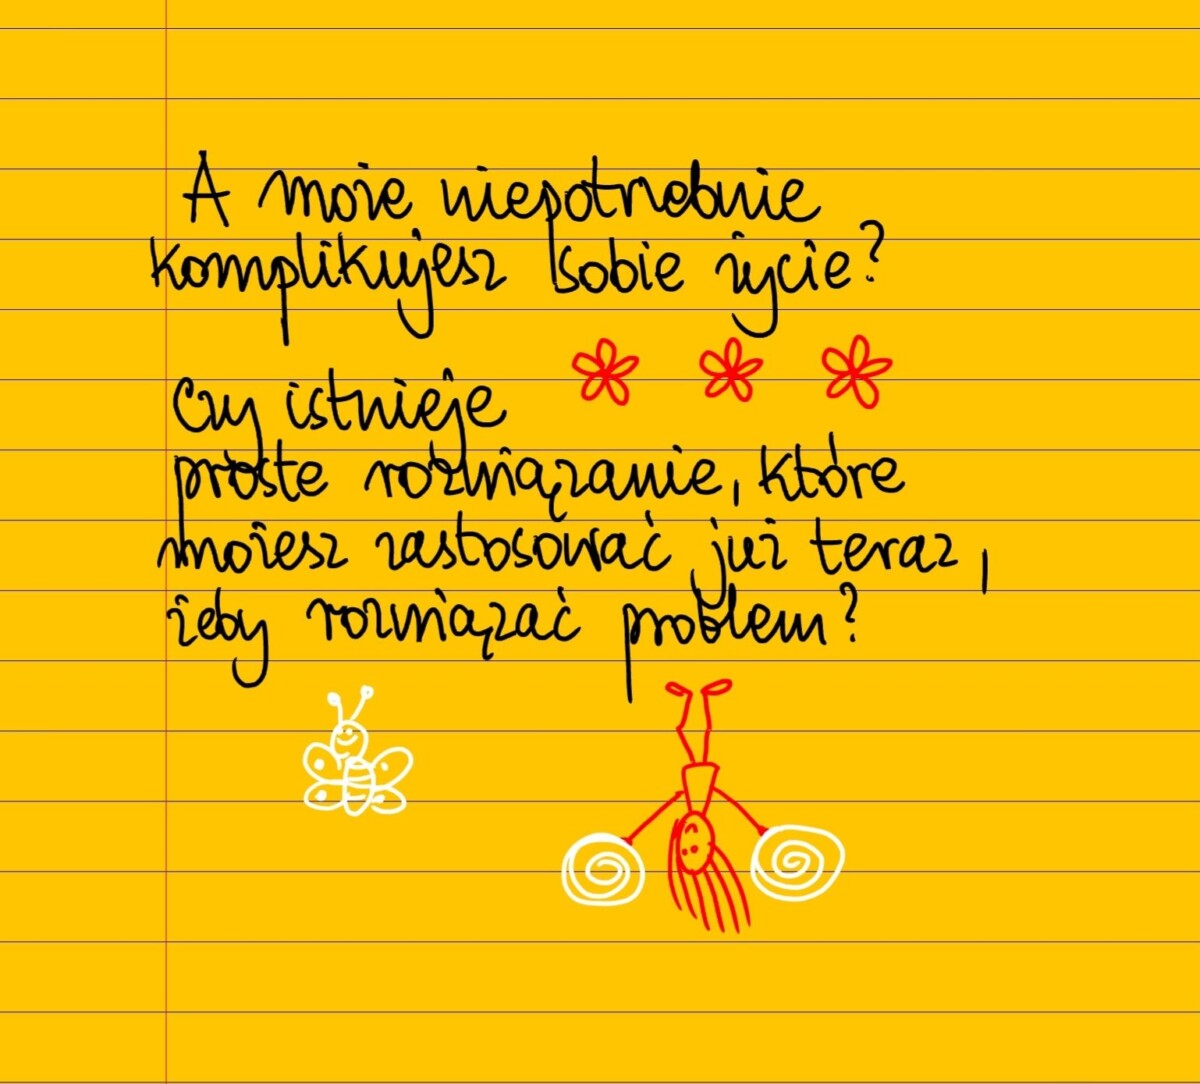 A może niepotrzebnie
komplikujesz sobie życie?
Czy istnieje
proste rozwiązanie, które
możesz zastosować już teraz,
żeby rozwiązać problem?